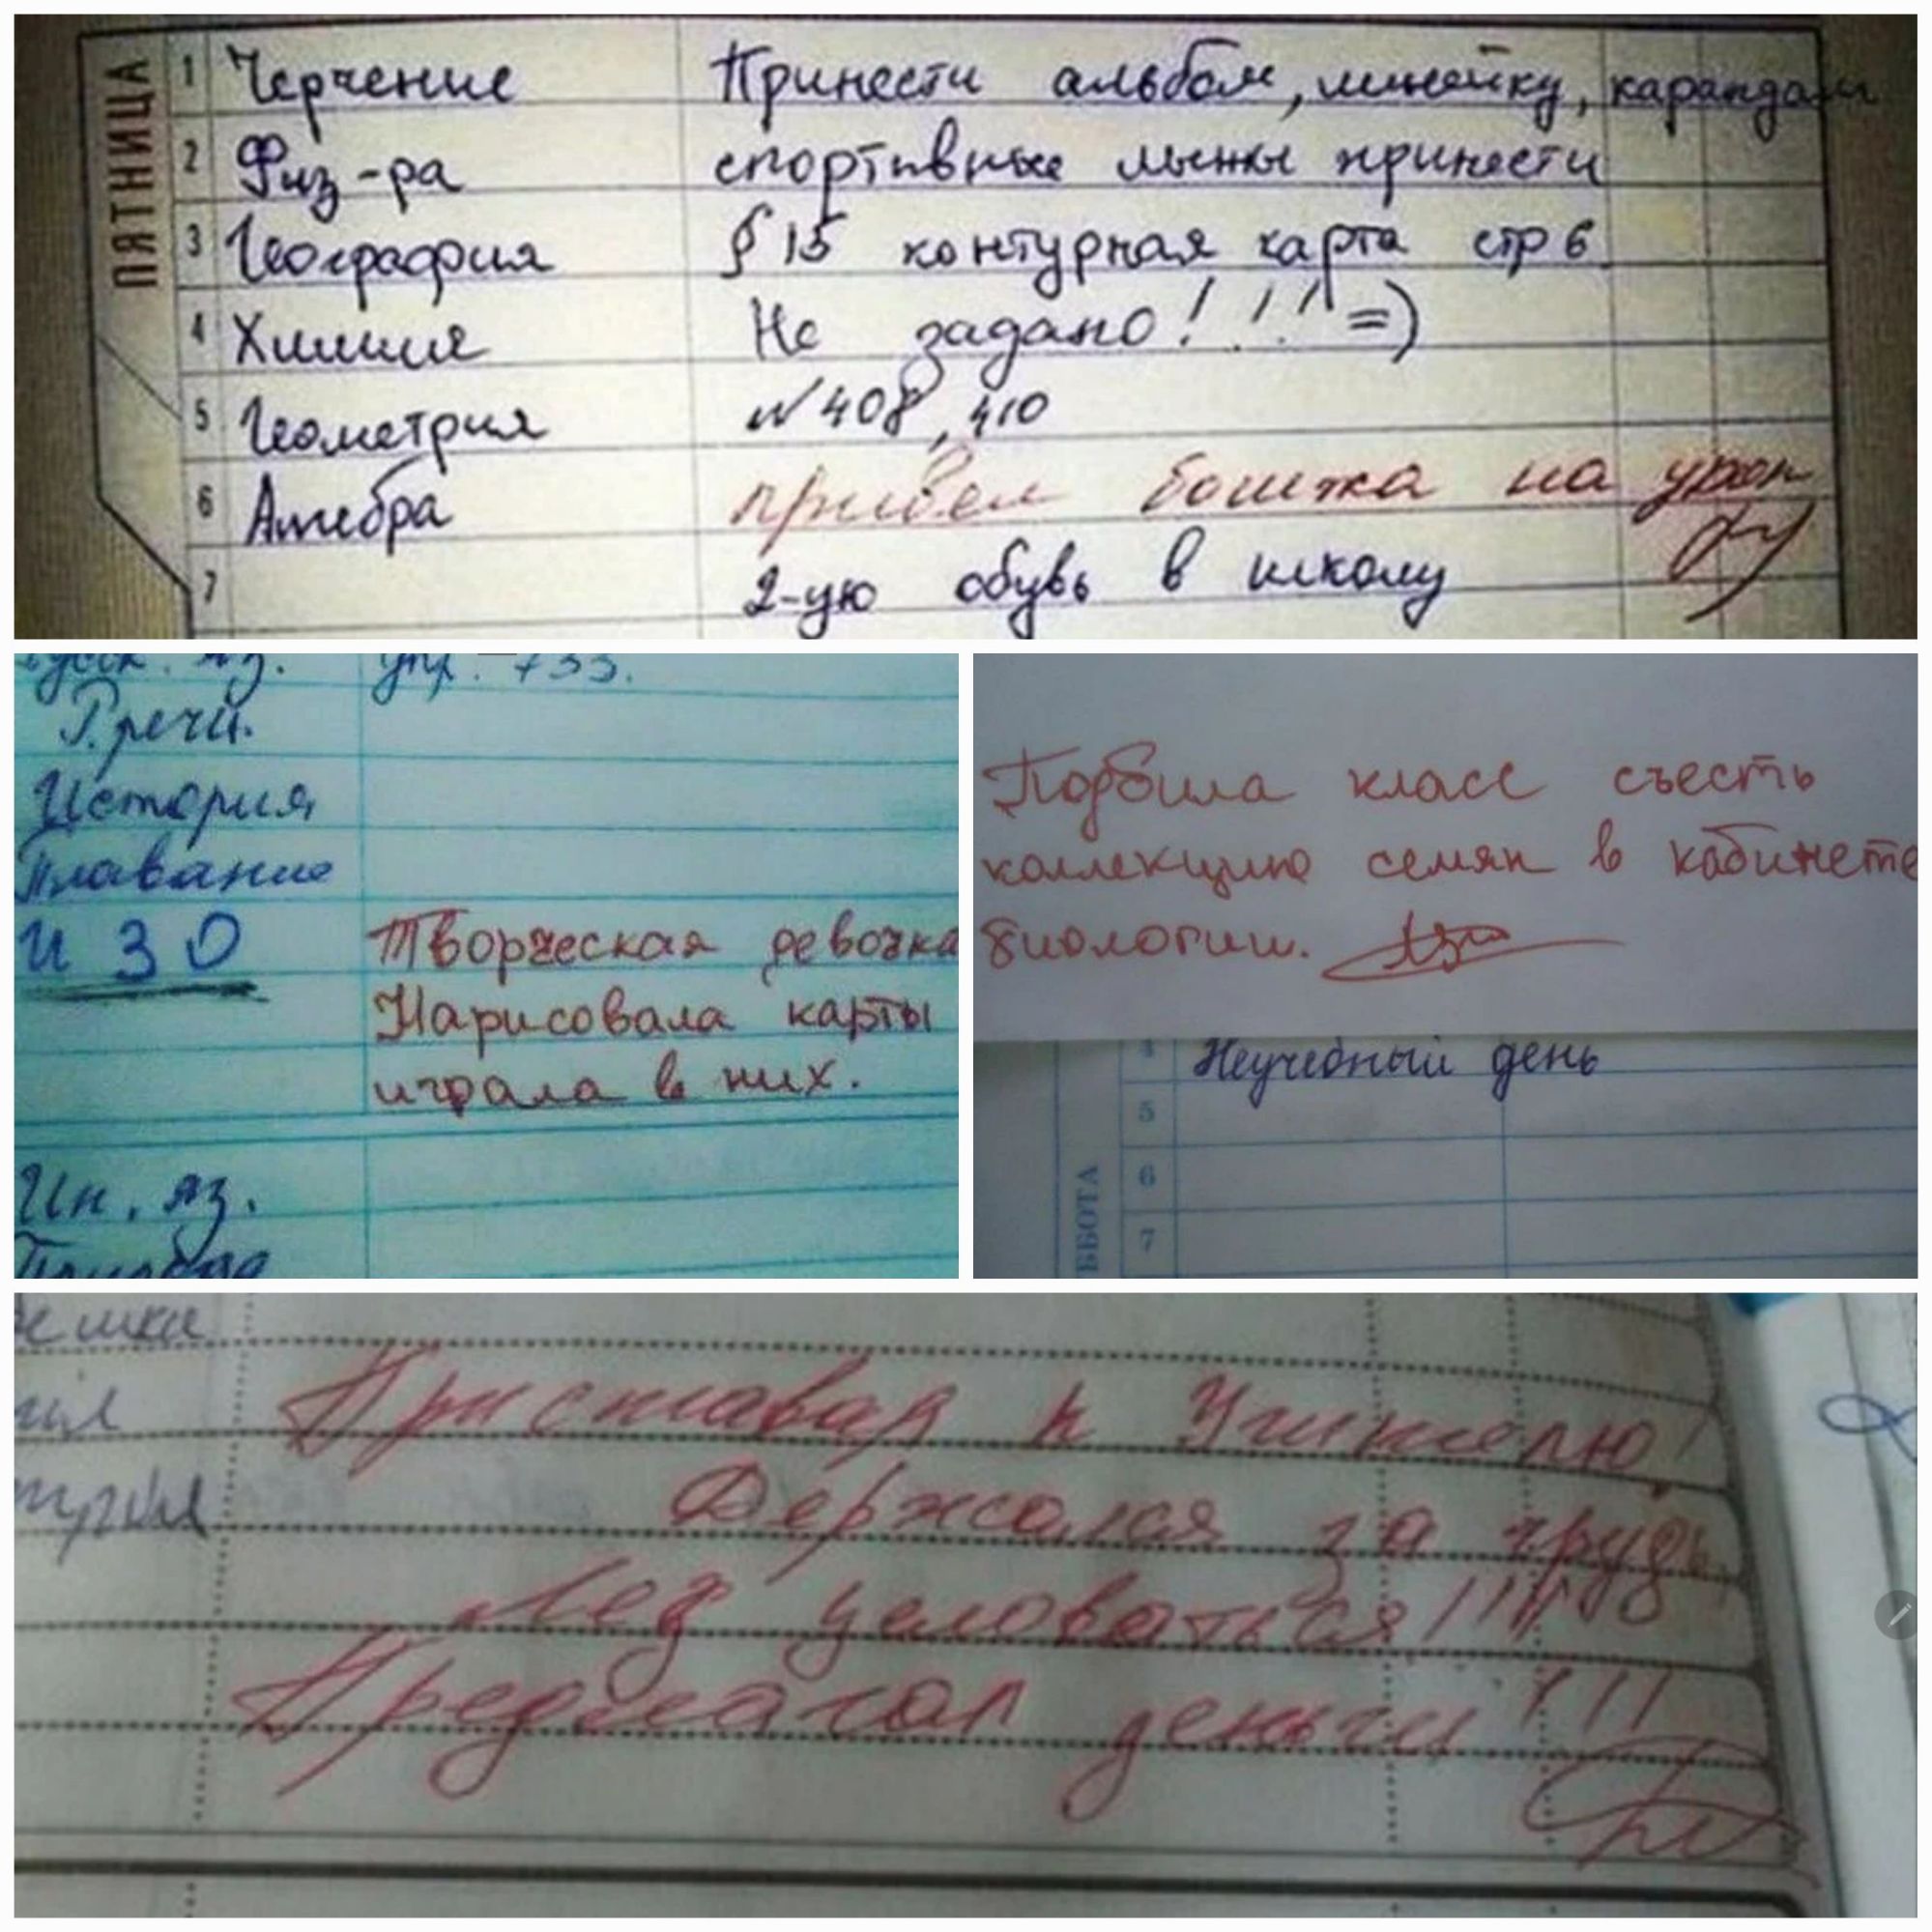 ПЯТНИЦА
1 Черчение Принести альбом, линейку, карандаш
2 Физ-ра спортивные лыжы принести
3 География § 15 контурная карта стр 6
4 Химия Не задано!!! =)
5 Геометрия № 408, 410
6 Алгебра привёл бомжа на урок
7 2-ую обувь в школу
яз. упр. 733.
Р. речи.
История
Плавание
ИЗО Творческая девочка
Нарисовала карты
играла в них.
Ин. яз.
Подбила класс съесть
коллекцию семян в кабинете
биологии.
4 Неучебный день
5
6
7
ББОТА
Приставал к Учителю!
Держался за грудь
Лез целоваться!!!!
Предлагал деньги!!!